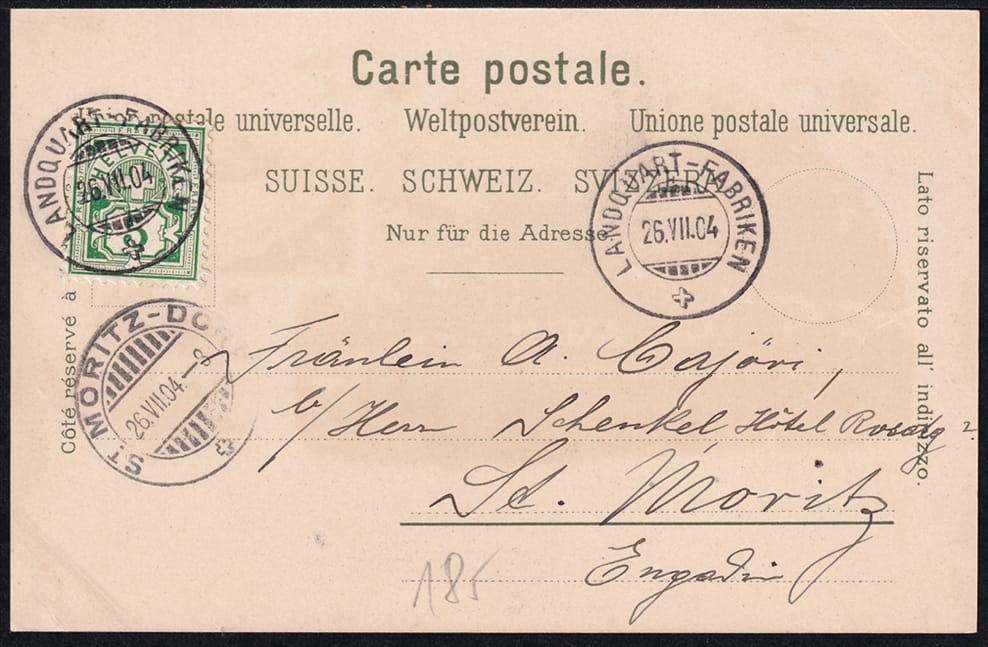 Carte postale.
postale universelle. Weltpostverein. Unione postale universale.
SUISSE. SCHWEIZ. SVIZZERA.
Nur für die Adresse
Côté réservé à
Lato riservato all' indirizzo.
HELVETIA
5
LANDQUART-FABRIKEN
26.VII.04
LANDQUART-FABRIKEN
26.VII.04
ST MORITZ-DORF
26.VII.04.–8
Fräulein A. Cajöri,
b/Herrn Schenkel Hôtel
St. Moritz
Engadin
185